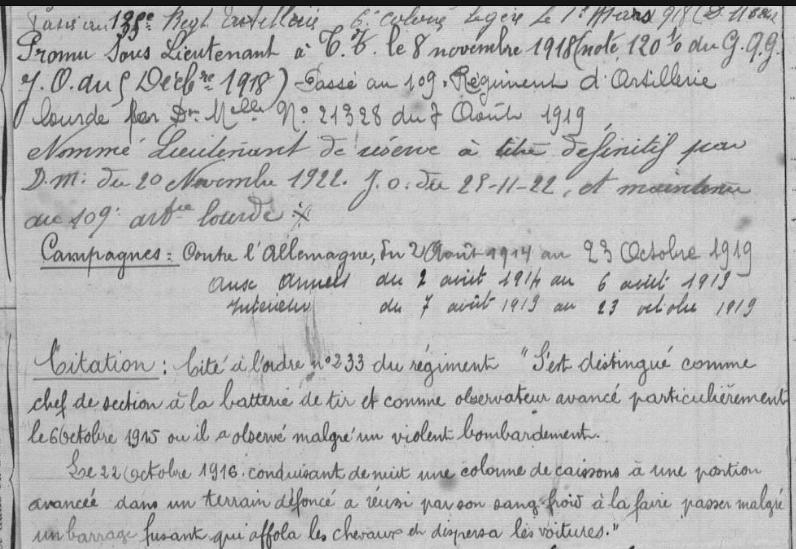 Régt Artillerie 6e colonne légère le 1er Mars 918
Promu Sous Lieutenant à T.T. le 8 novembre 1918 (note 120 % du G.Q.G.
J.O. du 5 Décbre 1918) Passé au 109. Régiment d'Artillerie
lourde par Don Melle No. 21328 du 7 Août 1919
Nommé Lieutenant de réserve à titre définitif par
D.M. du 20 Novembre 1922. J.O. du 29-11-22, et maintenu
au 109e artrie lourde
Campagnes : Contre l'Allemagne, du 2 Août 1914 au 23 Octobre 1919
Aux Armées du 2 août 1914 au 6 août 1919
Intérieur du 7 août 1919 au 23 octobre 1919
Citation : Cité à l'ordre no 233 du régiment "S'est distingué comme
chef de section à la batterie de tir et comme observateur avancé particulièrement
le 6 Octobre 1915 ou il a observé malgré un violent bombardement.
Le 22 Octobre 1916 conduisant de nuit une colonne de caissons à une position
avancée dans un terrain défoncé a réussi par son sang froid à la faire passer malgré
un barrage fusant qui affola les chevaux et dispersa les voitures."